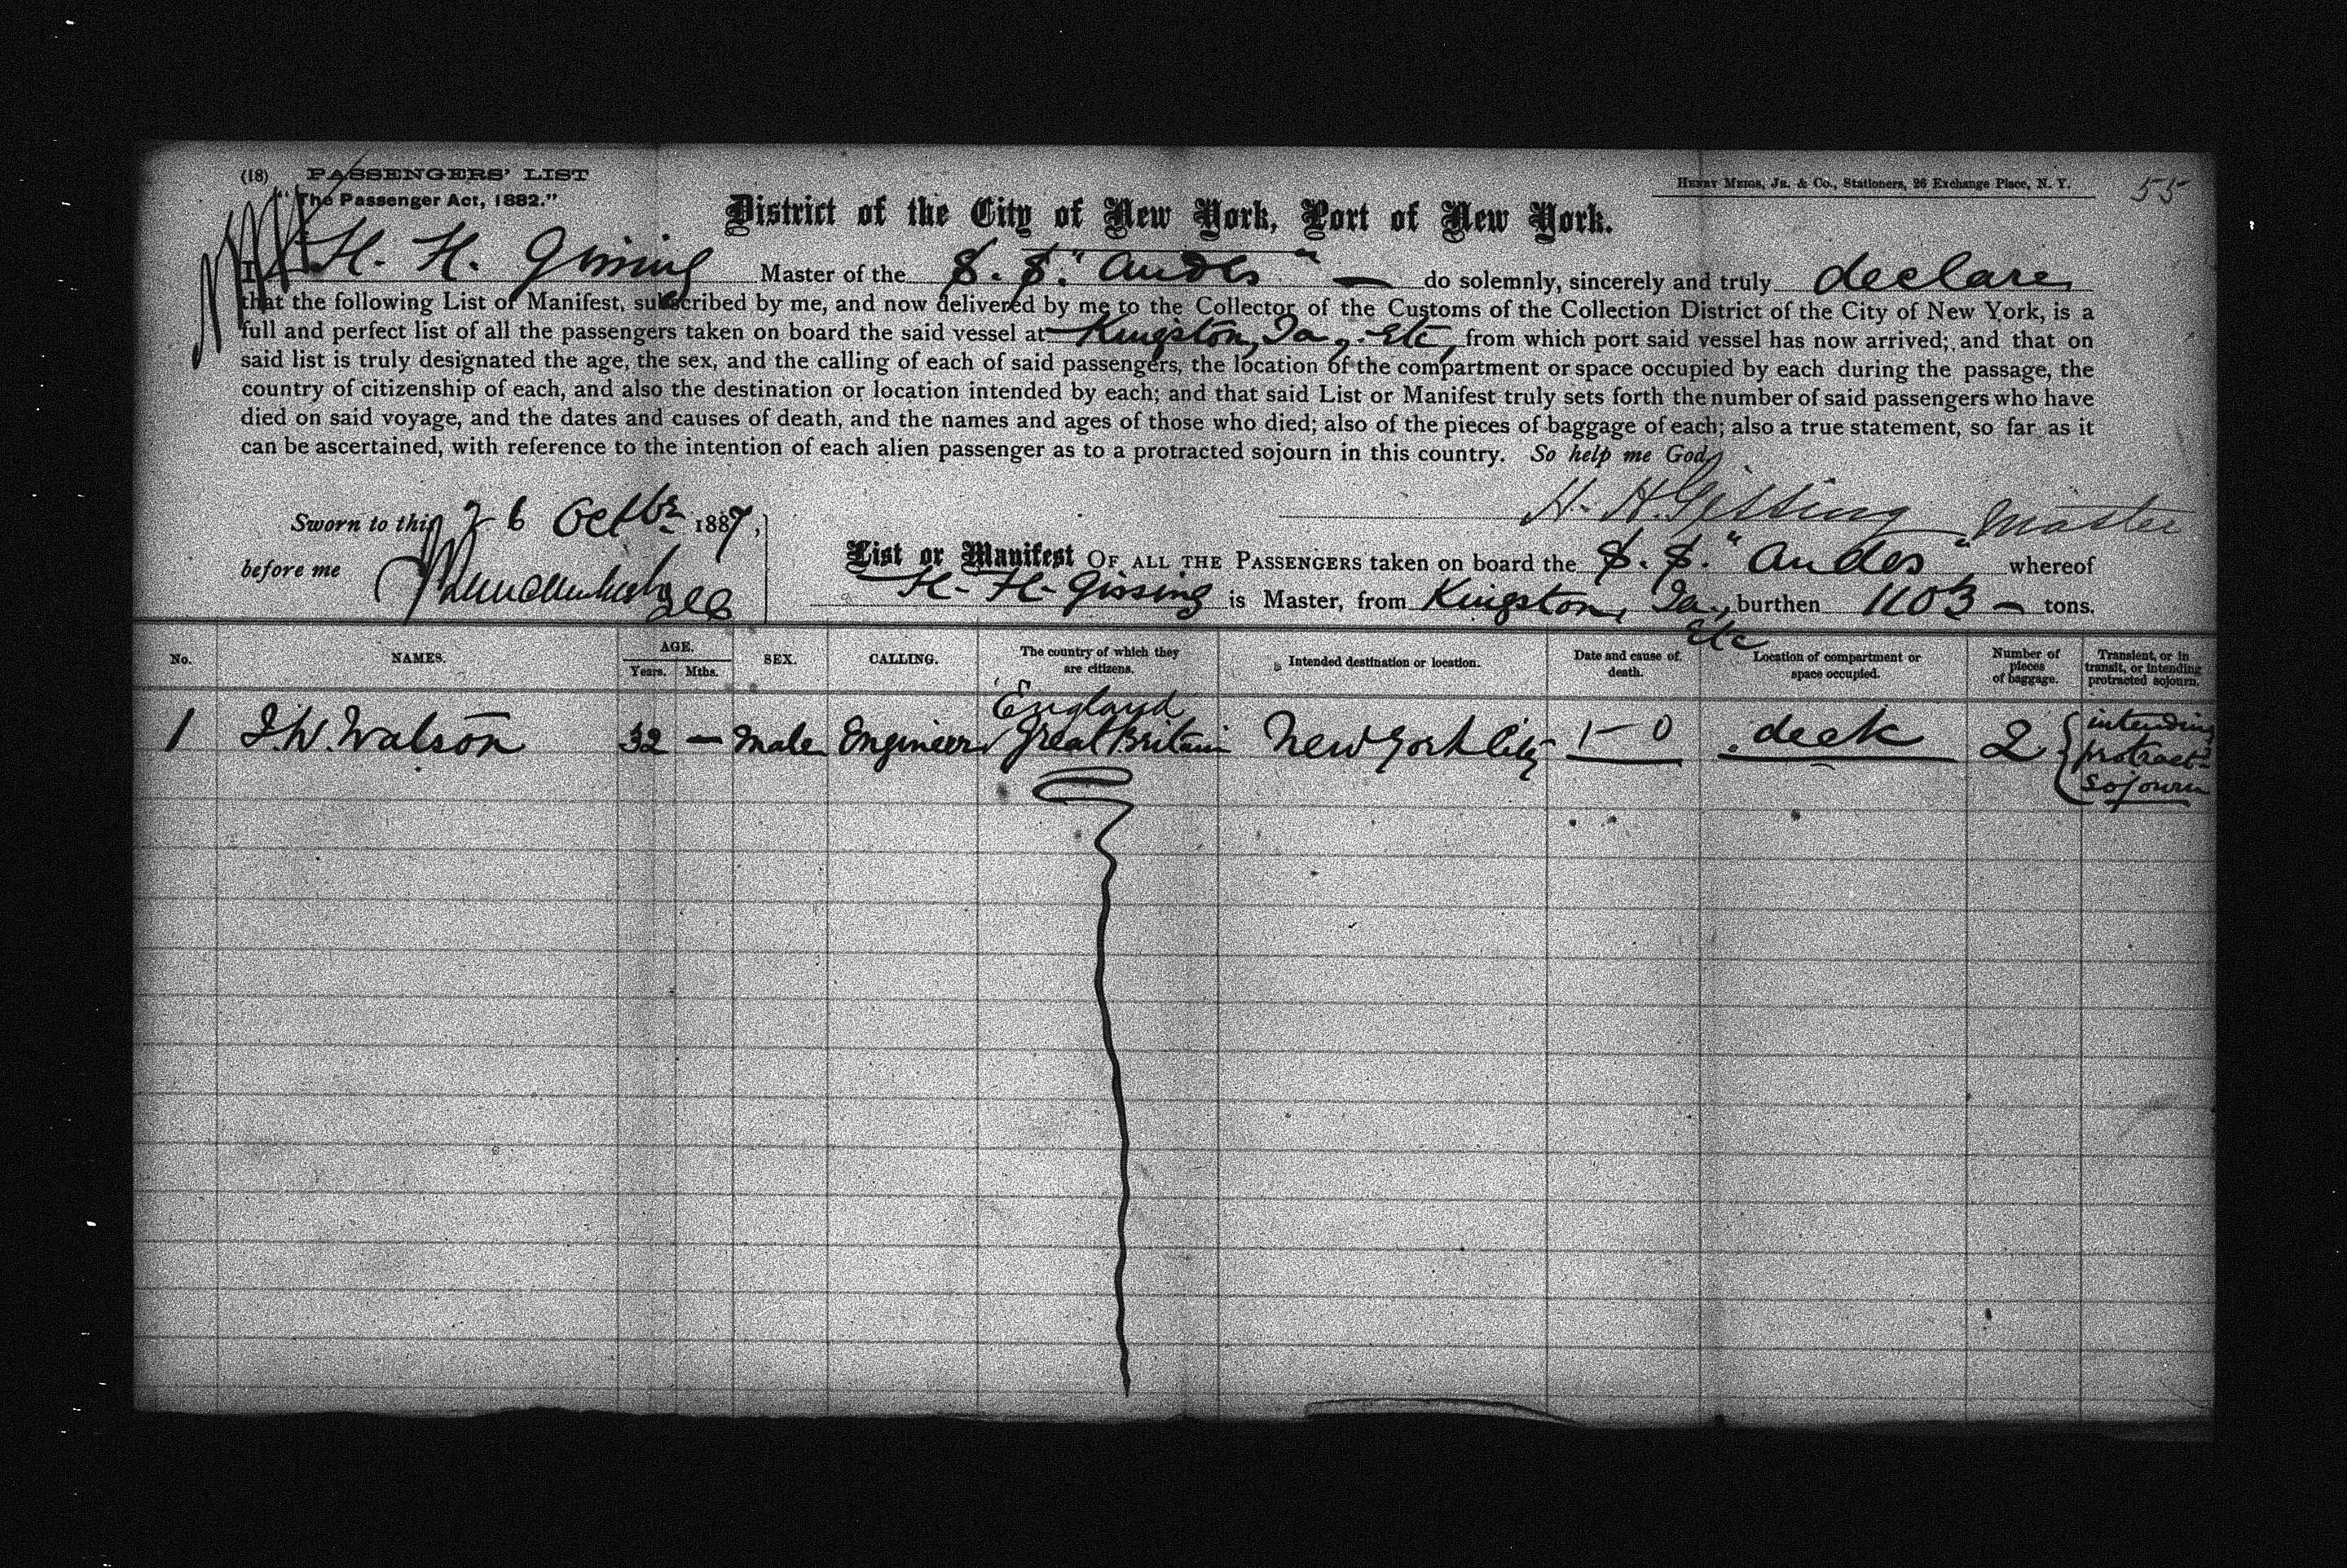 (18) PASSENGERS' LIST
HENRY MEIGS, JR. & CO., Stationers, 26 Exchange Place, N. Y.
55
"The Passenger Act, 1882."
District of the City of New York, Port of New York.
I, H. H. Gissing Master of the S. S. "Andes" — do solemnly, sincerely and truly declare
that the following List or Manifest, subscribed by me, and now delivered by me to the Collector of the Customs of the Collection District of the City of New York, is a
full and perfect list of all the passengers taken on board the said vessel at Kingston, Ja, etc, from which port said vessel has now arrived; and that on
said list is truly designated the age, the sex, and the calling of each of said passengers, the location of the compartment or space occupied by each during the passage, the
country of citizenship of each, and also the destination or location intended by each; and that said List or Manifest truly sets forth the number of said passengers who have
died on said voyage, and the dates and causes of death, and the names and ages of those who died; also of the pieces of baggage of each; also a true statement, so far as it
can be ascertained, with reference to the intention of each alien passenger as to a protracted sojourn in this country. So help me God,
H. H. Gissing Master
Sworn to this 26 Octbr 1887,
before me
List or Manifest OF ALL THE PASSENGERS taken on board the S. S. "Andes" whereof
H. H. Gissing is Master, from Kingston, Ja, etc burthen 1103 — tons.
No. NAMES. AGE. Years. Mths. SEX. CALLING. The country of which they are citizens. Intended destination or location. Date and cause of death. Location of compartment or space occupied. Number of pieces of baggage. Transient, or in transit, or intending protracted sojourn.
England
1 J. W. Watson 32 — Male Engineer Great Britain New York City deck 2 intending
protract
sojourn